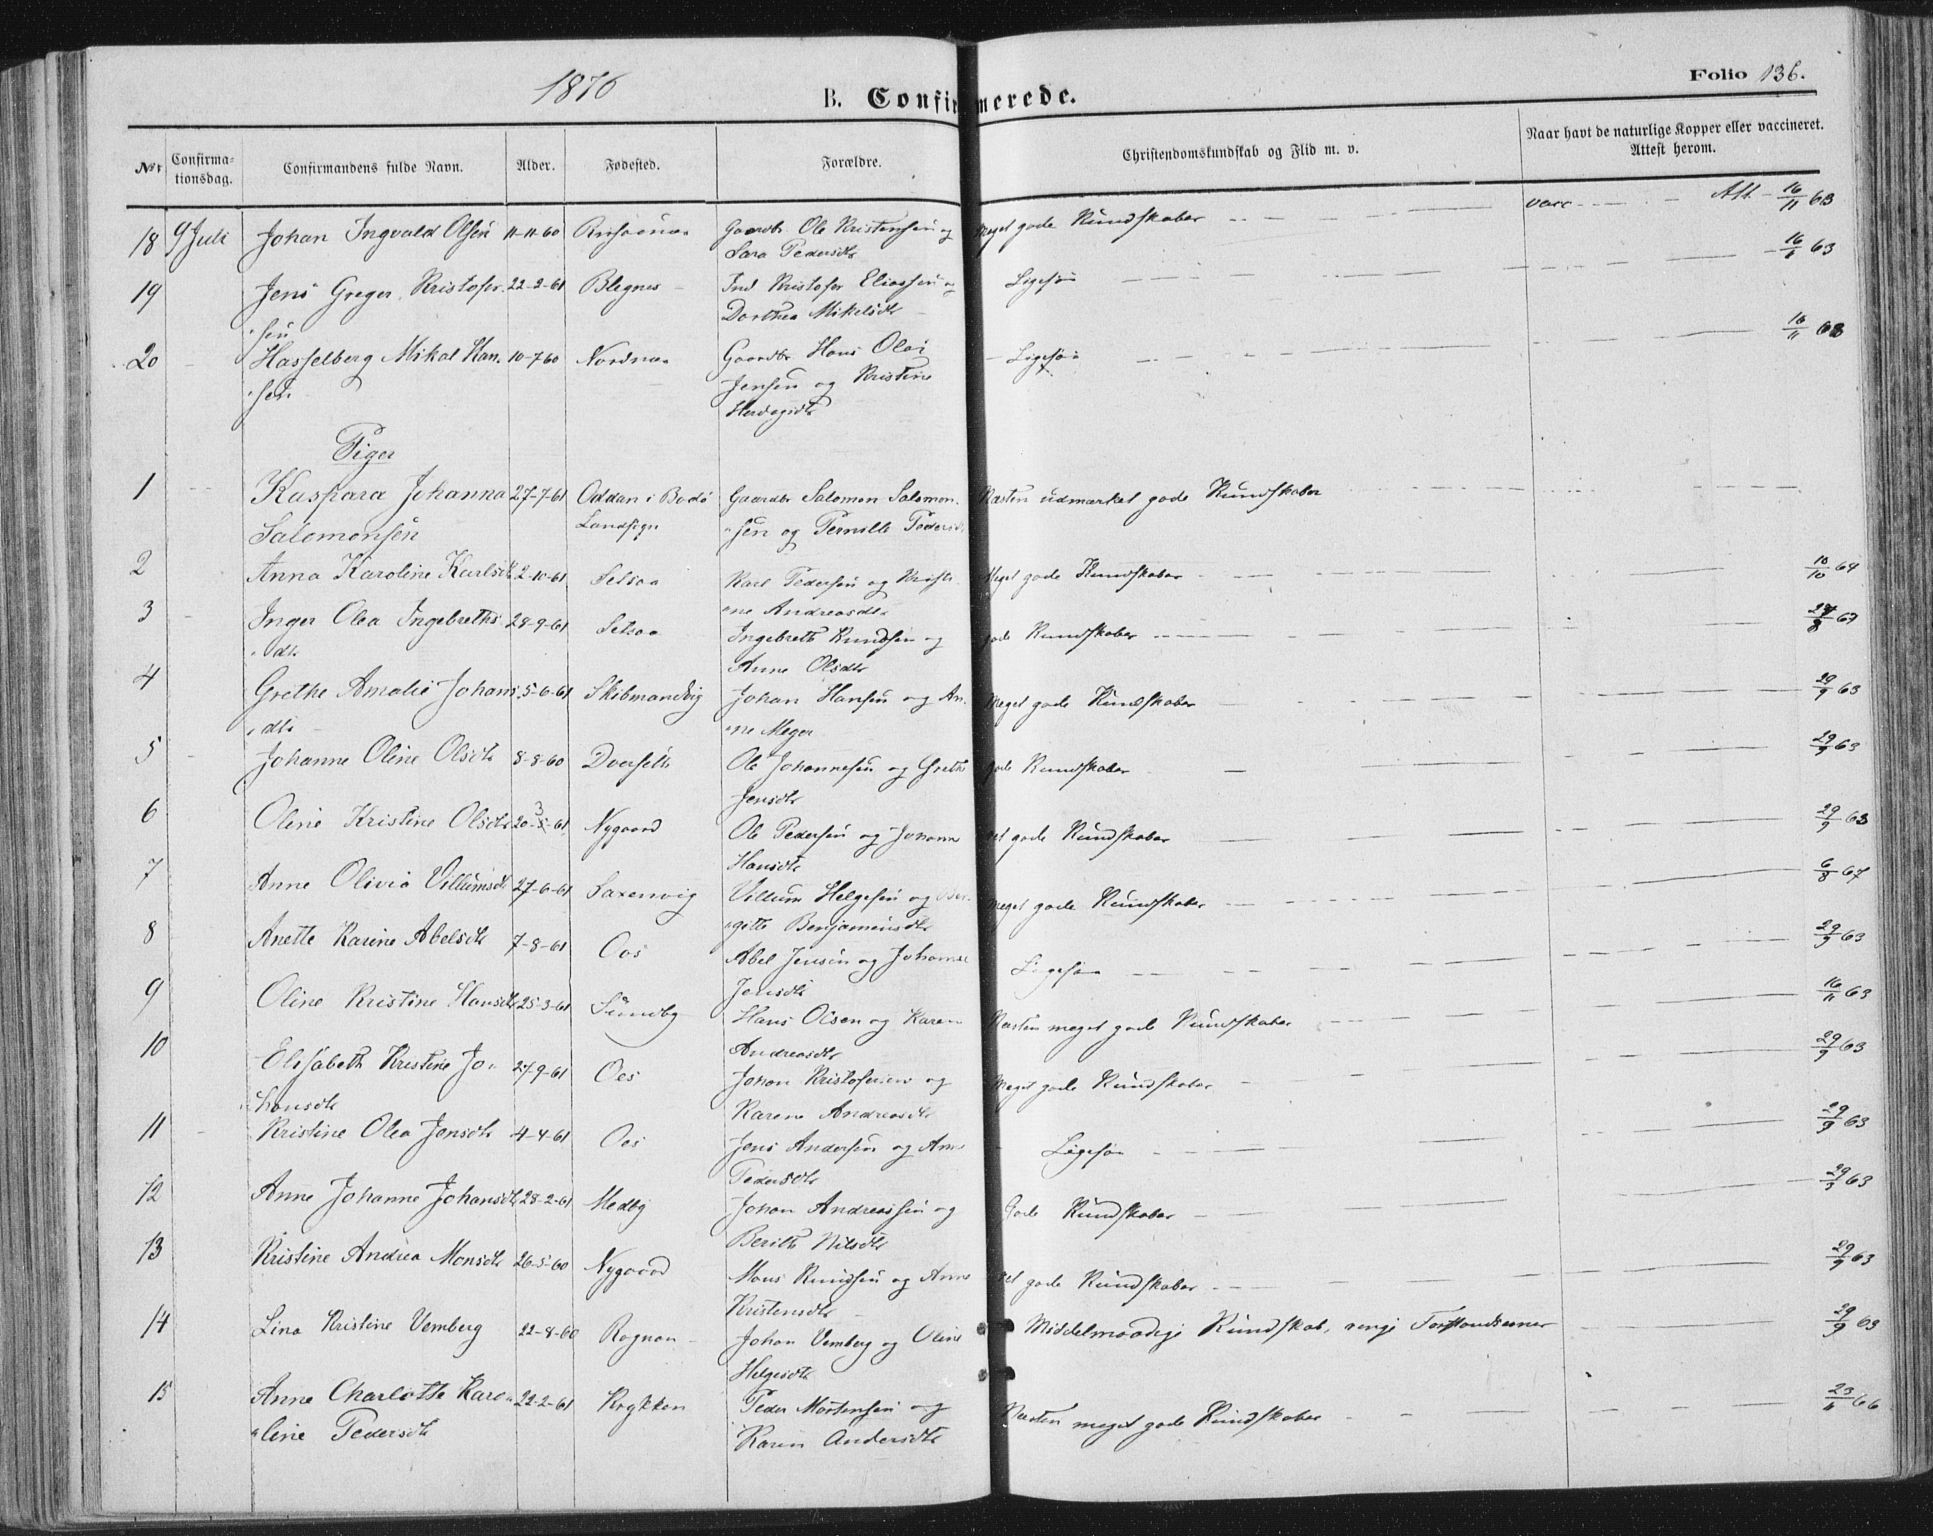 1876
B. Confirmerede.
Folio 136.
No Confirmationsdag. Confirmandens fulde Navn. Alder. Fødested. Forældre. Christendomskundskab og Flid m. v. Naar havt de naturlige Kopper eller vaccineret. Attest herom.
18 9 Juli Johan Ingvald Olsen 11-11-60 Gaardbr Ole Kristensen og Meget gode Kundskaber vacc Att. 16/11 63
Sara Pedersdtr
19 Jens Greger Kristofer- 22-2-61 Blegnes Ind Kristofer Eliassen og Ligesaa 16/11 63
sen Dorthea Mikelsdtr
20 Hasselberg Mikal Han- 10-7-60 Nordnes Gaardbr Hans Olai Ligesaa 16/11 63
sen Jensen og Kristine
Piger
1 Kaspara Johanna 27-7-61 Oddan i Bodø Gaardbr Salomon Salomon- Næsten udmærket gode Kundskaber
Salomonsen Landsogn sen og Pernille Pedersdtr
2 Anna Karoline Karlsdtr 2-10-61 Setsaa Karl Pedersen og Krist- Meget gode Kundskaber 10/10 64
ine Andreasdtr
3 Inger Olea Ingebreths- 28-9-61 Setsaa Ingebreth Knudsen og gode Kundskaber
dtr Anne Olsdtr
4 Grethe Amalie Johans- 5-6-61 Skibmandvig Johan Hansen og An- Meget gode Kundskaber 29/9 63
dtr ne Meyer
5 Johanne Oline Olsdtr 8-8-60 Dverseth Ole Johannesen og Grethe gode Kundskaber 29/9 63
Jensdtr
6 Oline Kristine Olsdtr 20-3-61 Nygaard Ole Pedersen og Johanne get gode Kundskaber 29/9 63
Hansdtr
7 Anne Olivia Villumsdtr 27-6-61 Saxenvig Villum Helgesen og Ber- Meget gode Kundskaber 6/8 67
gitte Benjaminsdtr
8 Anette Karine Abelsdtr 7-8-61 Oes Abel Jensen og Johanne Ligesaa 29/9 63
Jonsdtr
9 Oline Kristine Hansdtr 25-3-61 Sundby Hans Olsen og Karen Næsten meget gode Kundskaber 16/11 63
Andreasdtr
10 Elisabeth Kristine Jo- 27-9-61 Oes Johan Kristofersen og Meget gode Kundskaber 29/9 63
hansdtr Karen Andreasdtr
11 Kristine Olea Jensdtr 4-4-61 Oes Jens Andersen og Anne Ligesaa 29/9 63
Pedersdtr
12 Anne Johanne Johansdtr 28-2-61 Medby Johan Andreassen og Gode Kundskaber 29/9 63
Berith Nilsdtr
13 Kristine Andrea Monsdtr 26-5-60 Nygaard Mons Knudsen og Anne get gode Kundskaber 29/9 63
Kristensdtr
14 Lina Kristine Vemberg 22-8-60 Rognan Johan Vemberg og Oline Middelmaadige Kundskab, ringe Forstandsevner 29/9 63
Helgesdtr
15 Anne Charlotte Karo- 22-2-61 Krykken Peder Mortensen og Næsten meget gode Kundskaber
line Pedersdtr Karen Andersdtr